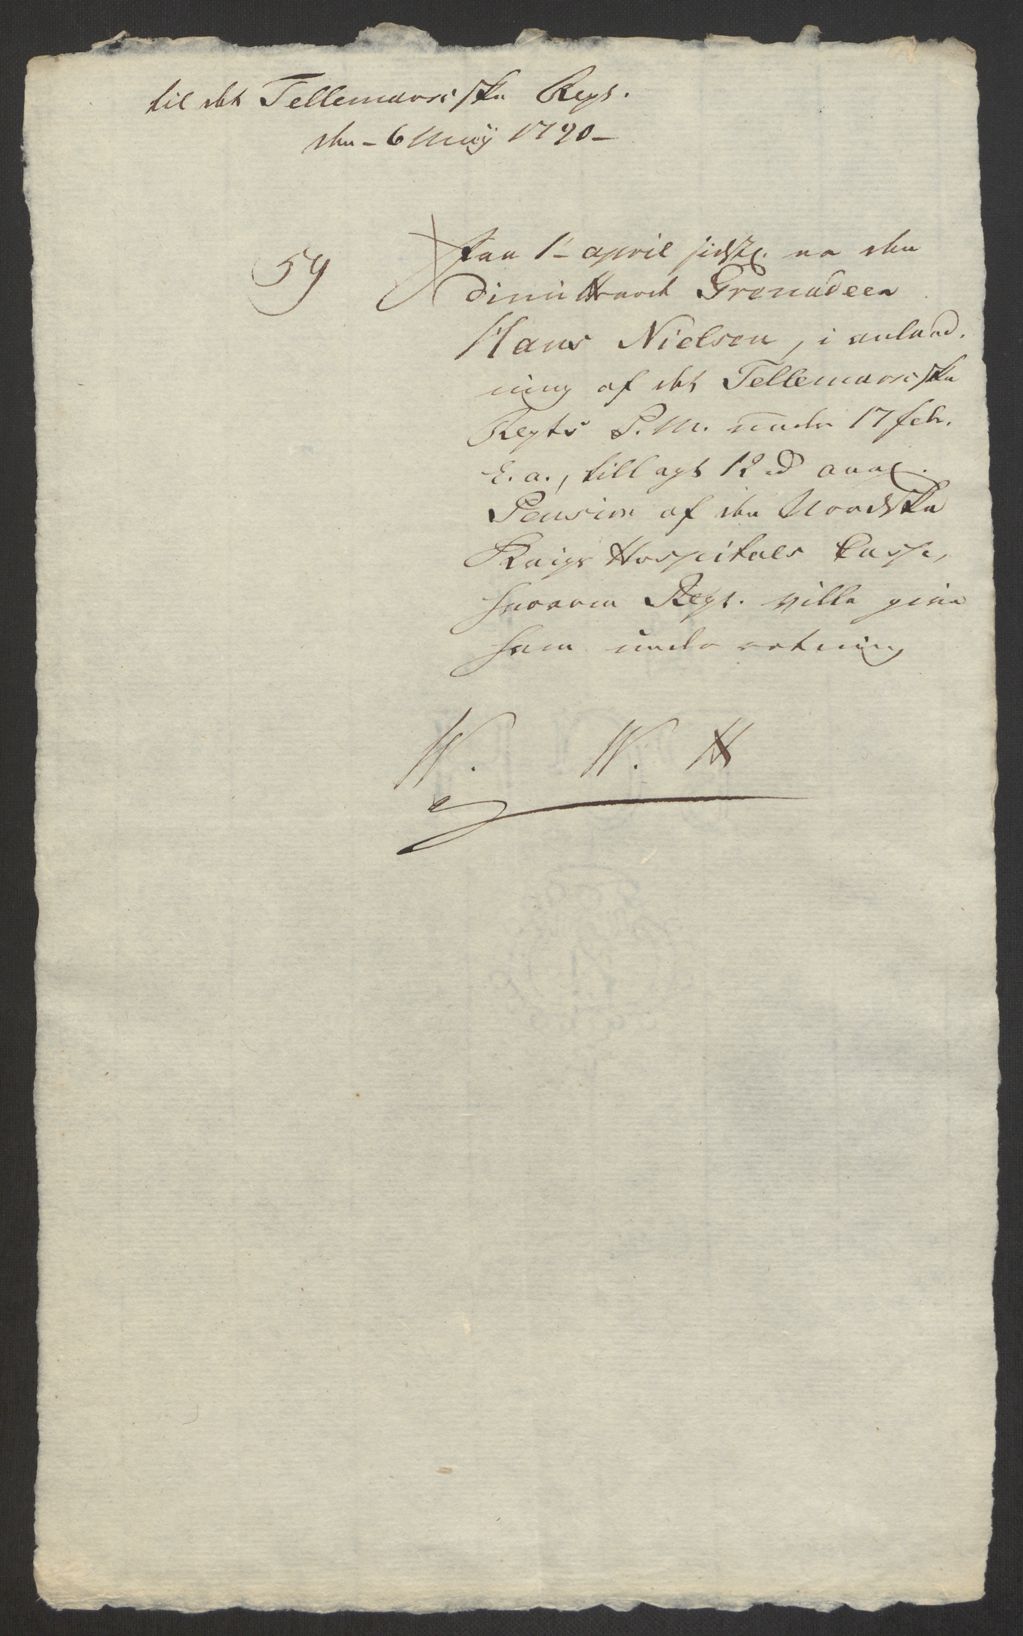 til det Tellemarciske Regt.
den 6 Maij 1790
59 Fra 1 april sidstl. er den
dimitterede Grenadeer
Hans Nielsen, i anled-
ning af det Tellemarciske
Regts P.M. under 17 febr.
E. a., tillagt 12 rd aarl.
Pension af den Nordske
Krigs Hospitals Casse,
hvorom Regt. ville give
ham underretning
W. W. H